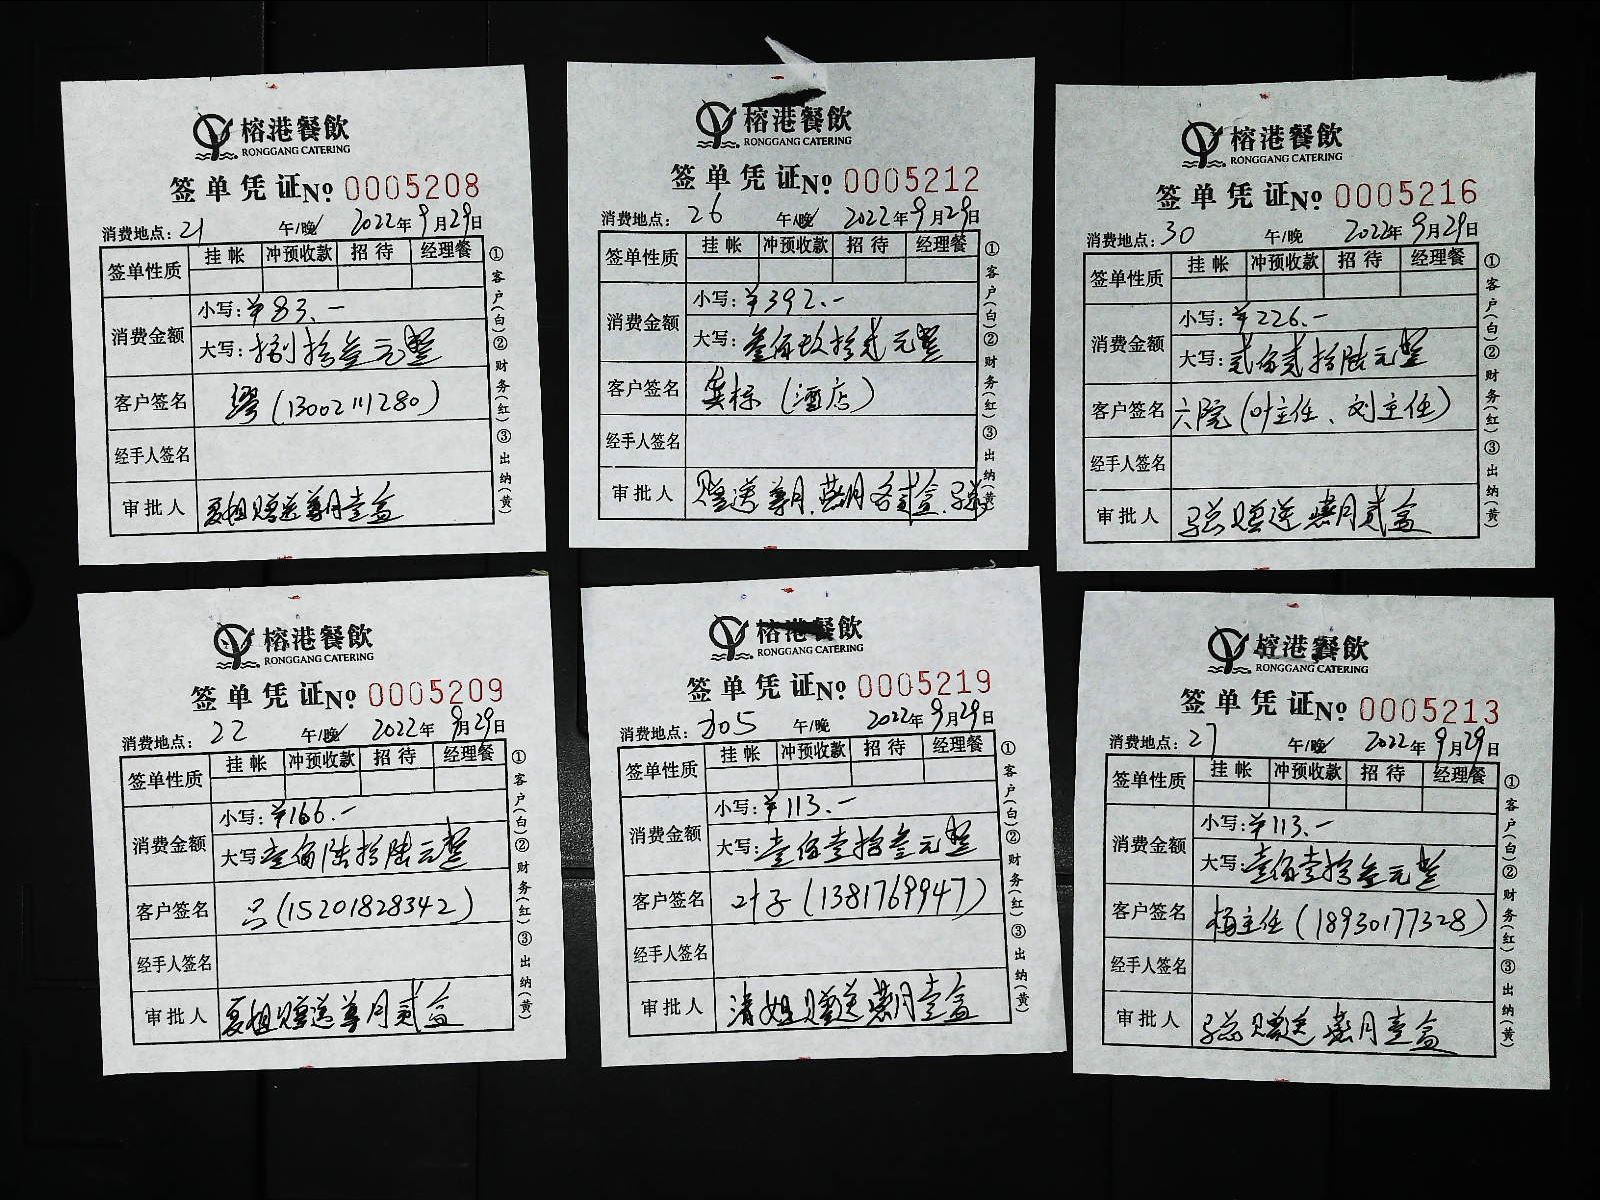 榕港餐飲
RONGGANG CATERING
签单凭证№ 0005208
消费地点: 21 午/晚 2022年9月29日
签单性质 挂帐 冲预收款 招待 经理餐
消费金额 小写: ¥83.-
大写: 捌拾叁元整
客户签名 缪(13002111280)
经手人签名
审批人 夏姐赠送尊月壹盒
①客户(白)②财务(红)③出纳(黄)
榕港餐飲
RONGGANG CATERING
签单凭证№ 0005212
消费地点: 26 午/晚 2022年9月29日
签单性质 挂帐 冲预收款 招待 经理餐
消费金额 小写: ¥392.-
大写: 叁佰玖拾贰元整
客户签名 (酒店)
经手人签名
审批人 赠送尊月.燕月各贰盒.
①客户(白)②财务(红)③出纳(黄)
榕港餐飲
RONGGANG CATERING
签单凭证№ 0005216
消费地点: 30 午/晚 2022年9月29日
签单性质 挂帐 冲预收款 招待 经理餐
消费金额 小写: ¥226.-
大写: 贰佰贰拾陆元整
客户签名 六院(叶主任、刘主任)
经手人签名
审批人 赠送燕月贰盒
①客户(白)②财务(红)③出纳(黄)
榕港餐飲
RONGGANG CATERING
签单凭证№ 0005209
消费地点: 22 午/晚 2022年9月29日
签单性质 挂帐 冲预收款 招待 经理餐
消费金额 小写: ¥166.-
大写: 壹佰陆拾陆元整
客户签名 吕(15201828342)
经手人签名
审批人 夏姐赠送尊月贰盒
①客户(白)②财务(红)③出纳(黄)
榕港餐飲
RONGGANG CATERING
签单凭证№ 0005219
消费地点: 305 午/晚 2022年9月29日
签单性质 挂帐 冲预收款 招待 经理餐
消费金额 小写: ¥113.-
大写: 壹佰壹拾叁元整
客户签名 叶子(1381769947)
经手人签名
审批人 清姐赠送燕月壹盒
①客户(白)②财务(红)③出纳(黄)
榕港餐飲
RONGGANG CATERING
签单凭证№ 0005213
消费地点: 27 午/晚 2022年9月29日
签单性质 挂帐 冲预收款 招待 经理餐
消费金额 小写: ¥113.-
大写: 壹佰壹拾叁元整
客户签名 杨主任(18930177328)
经手人签名
审批人 赠送燕月壹盒
①客户(白)②财务(红)③出纳(黄)